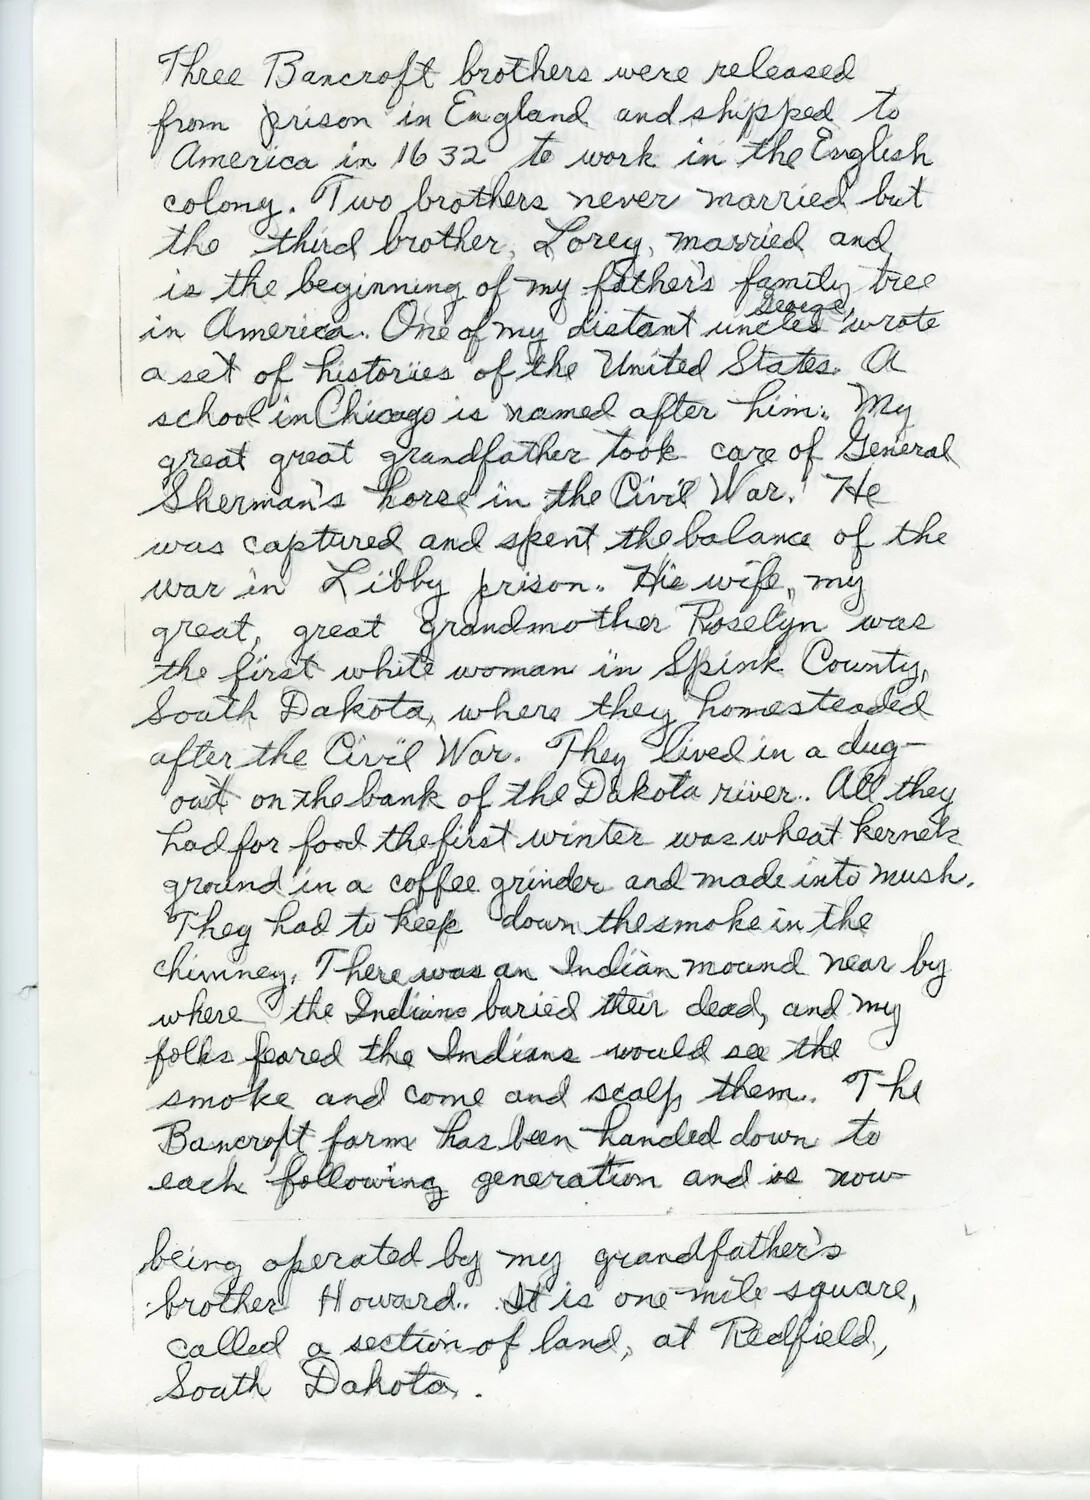 Three Bancroft brothers were released
from prison in England and shipped to
America in 1632 to work in the English
colony. Two brothers never married but
the third brother, Lorey, married and
is the beginning of my father's family tree
George,
in America. One of my distant uncles wrote
a set of histories of the United States. A
school in Chicago is named after him. My
great great grandfather took care of General
Sherman's horse in the Civil War. He
was captured and spent the balance of the
war in Libby prison. His wife, my
great, great grandmother Roselyn was
the first white woman in Spink County,
South Dakota, where they homesteaded
after the Civil War. They lived in a dug-
out on the bank of the Dakota river. All they
had for food the first winter was wheat kernels
ground in a coffee grinder and made into mush.
They had to keep down the smoke in the
chimney. There was an Indian mound near by
where the Indians buried their dead, and my
folks feared the Indians would see the
smoke and come and scalp them. The
Bancroft farm has been handed down to
each following generation and is now
being operated by my grandfather's
brother Howard. It is one mile square,
called a section of land, at Redfield,
South Dakota.